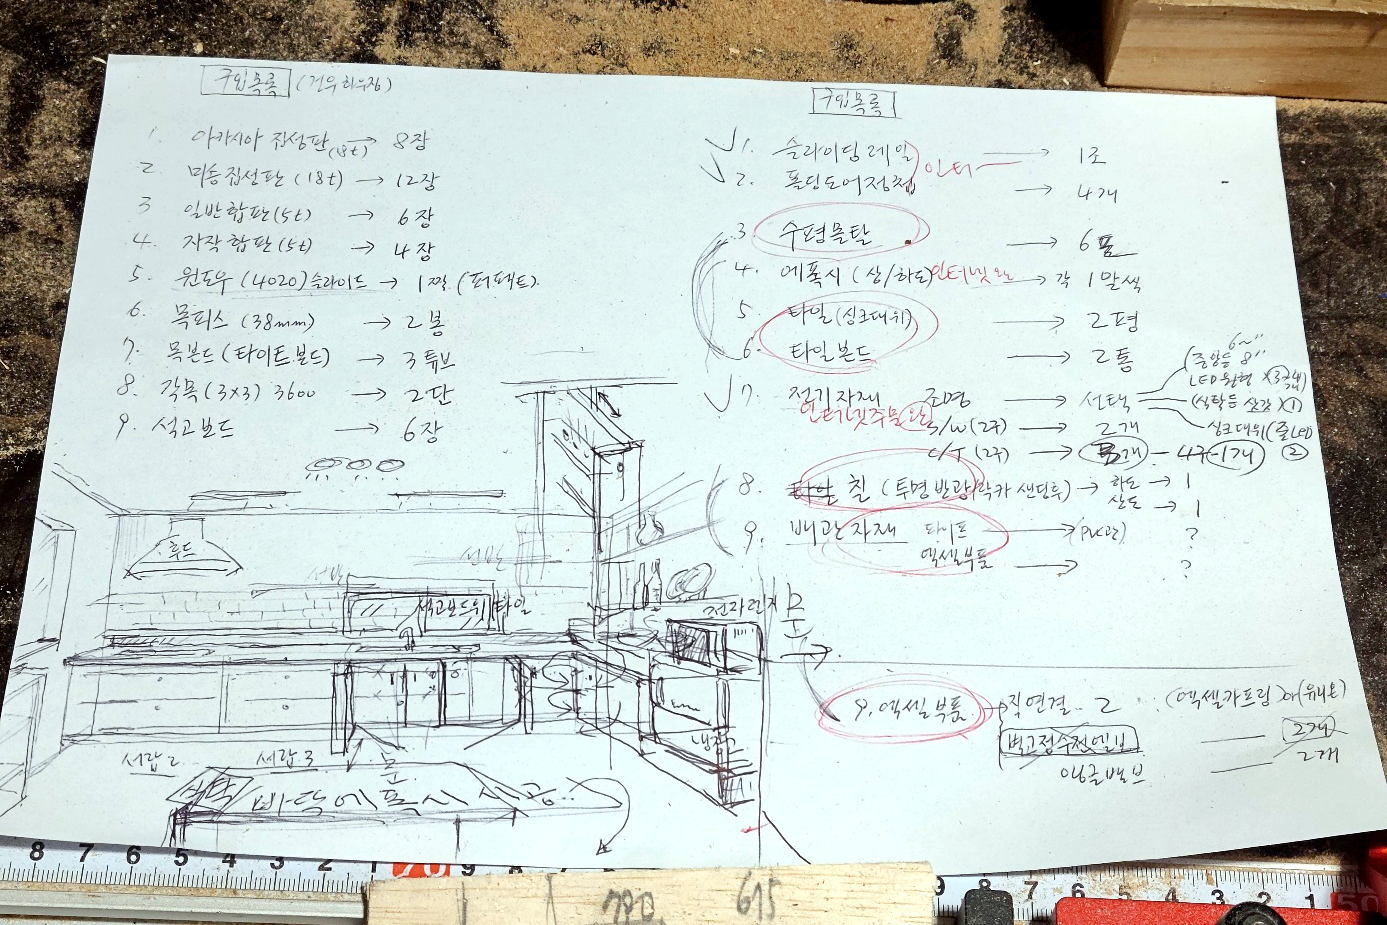 구입목록 (건우하우징)
1. 아카시아 집성판 (18t) → 8장
2. 미송집성판 (18t) → 12장
3 일반합판 (5t) → 6장
4. 자작합판 (5t) → 4장
5. 윈도우 (4020) 슬라이드 → 1짝 (퍼펙트).
6. 목피스 (38mm) → 2봉
7. 목본드 (타이트본드) → 3튜브
8. 각목 (3x3) 3600 → 2단
9. 석고보드 → 6장
구입목록
1. 슬라이딩레일 → 1조
인터
2. 폴딩도어정첩 → 4개
3 수평몰탈 → 6포
4. 에폭시 (상/하도) 인터넷 완 → 각 1말씩
5 타일 (싱크대위) → 2평
6. 타일본드 → 2통
7. 전기자재 조명 → 선택
인터넷주문 완
6~"
중앙등 8"
LED원형 x3개
(식탁등 삼각) x1
싱크대위 (줄LED) ②
S/W (2구) → 2개
C/T (2구) → 개 - 4구-1개
8. 칠 (투명반광/락카샌딩후) → 하도 → 1
상도 → 1
9. 배관자재 파이프 → (PVC관) ?
엑셀부품 → ?
후드
선반
선반
석고보드위 타일
전자렌지
문
냉장고
서랍2
서랍3
문
식탁
바닥에폭시시공..
9. 엑셀부품 → 직연결.. 2 (엑셀카프링) (유니온)
벽고정수전엘보 2개
앵글밸브 2개
8 7 6 5 4 3 2 1 70 9 8 7
9 8 7 6 5 4 3 2 1 50
790
615